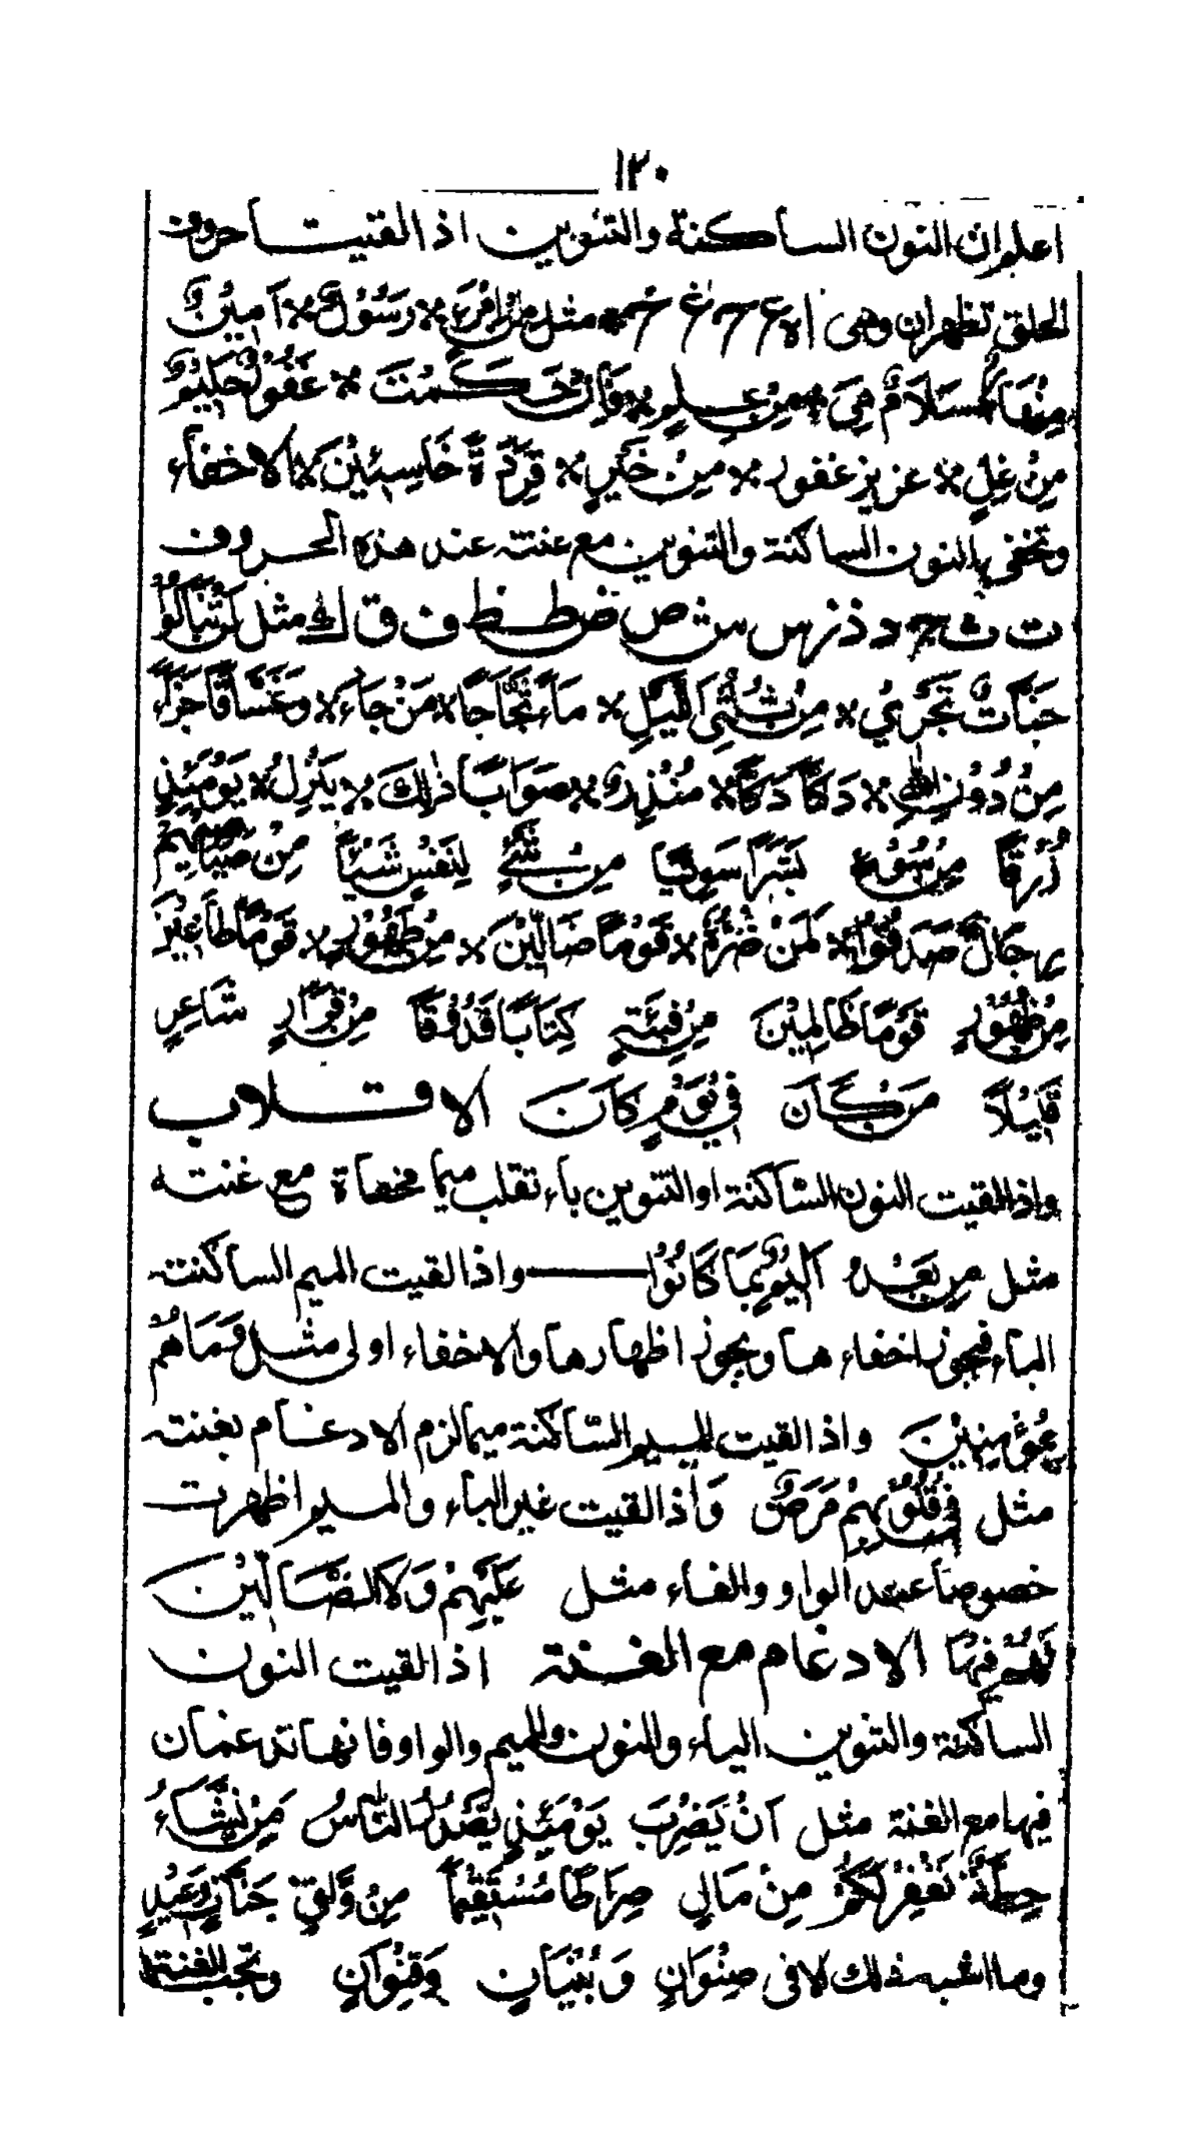 ١٢٠
اعلم ان النون الساكنة والتنوين اذا لقيتا حروف
الحلق تظهران وهى ا ه ع ح غ خ مثل مَنْ اٰمَنَ * رَسُوْلٌ * اَمِيْنٌ
مِنْهَا * سَلَامٌ هِىَ * مِنْ عِلْمٍ * كُنْتَ * غَفُوْرٌ حَلِيْمٌ
مِنْ غِلٍّ * عزيز غفور * مِنْ خَيْرٍ * قِرَدَةً خَاسِئِيْنَ * الاخفاء
وتخفى بالنون الساكنة والتنوين مع غنته عند هذه الحروف
ت ث ج د ذ ز س ش ص ض ط ظ ف ق ك مثل
جَنَّاتٌ تَجْرِيْ * مِنْ ثُلُثَيِ الَّيْلِ * مَاءً ثَجَّاجًا * مَنْ جَاءَ * وَغَسَّاقًا جَزَاءً
مِنْ دُوْنِ اللّٰهِ * دَكًّا دَكًّا * مُنْذِرٌ * صَوَابًا ذٰلِكَ * يَنْزِلُ * يَوْمَئِذٍ
زُرْقًا مِنْ سُوْءٍ بَشَرًا سَوِيًّا مِنْ شَيْءٍ لِنَفْسٍ شَيْئًا مِنْ صَيَاصِيْهِمْ
رِجَالٌ صَدَقُوْا * لَمَنْ ضَرُّهٗ * قَوْمًا ضَالِّيْنَ * مِنْ طَهُوْرٍ * قَوْمًا طَاغِيْنَ
مِنْ ظُهُوْرٍ قَوْمًا ظَالِمِيْنَ مِنْ فِئَةٍ كِتَابًا فَذُوْقُوْا مِنْ قَرَارٍ شَاعِرٍ
قَلِيْلًا مَنْ كَانَ فِيْ يَوْمٍ كَانَ الاقلاب
واذا لقيت النون الساكنة او التنوين باء تقلب ميما مخفاة مع غنته
مثل مِنْ بَعْدُ اَلِيْمٌ بِمَا كَانُوْا — واذا لقيت الميم الساكنته
الباء فيجوز اخفاءها ويجوز اظهارها والاخفاء اولى مثل وَمَا هُمْ
بِمُؤْمِنِيْنَ واذا لقيت الميم السّاكنة ميما لزم الادغام بغنته
مثل فِيْ قُلُوْبِهِمْ مَرَضٌ وَاذا لقيت غير الباء والميم اظهرت
خصوصا عند الواو والفاء مثل عَلَيْهِمْ وَلَا الضَّالِّيْنَ
لَهُمْ فِيْهَا الادغام مع الغنة اذا لقيت النون
الساكنة والتنوين الياء والنون والميم والواو فانها تدغمان
فيها مع الغنة مثل اَنْ يَضْرِبَ يَوْمَئِذٍ يَّصْدُرُ النَّاسُ مَنْ نَّشَاءُ
حِطَّةٌ نَغْفِرْ لَكُمْ مِنْ مَالِي صِرَاطًا مُسْتَقِيْمًا مِنْ وَّلِيٍّ جَنَّاتٍ وَعُيُوْنٍ
وما اشبه ذلك لا فى صِنْوَانٍ وَبُنْيَانٍ وَقِنْوَانٍ وتجب الغنة